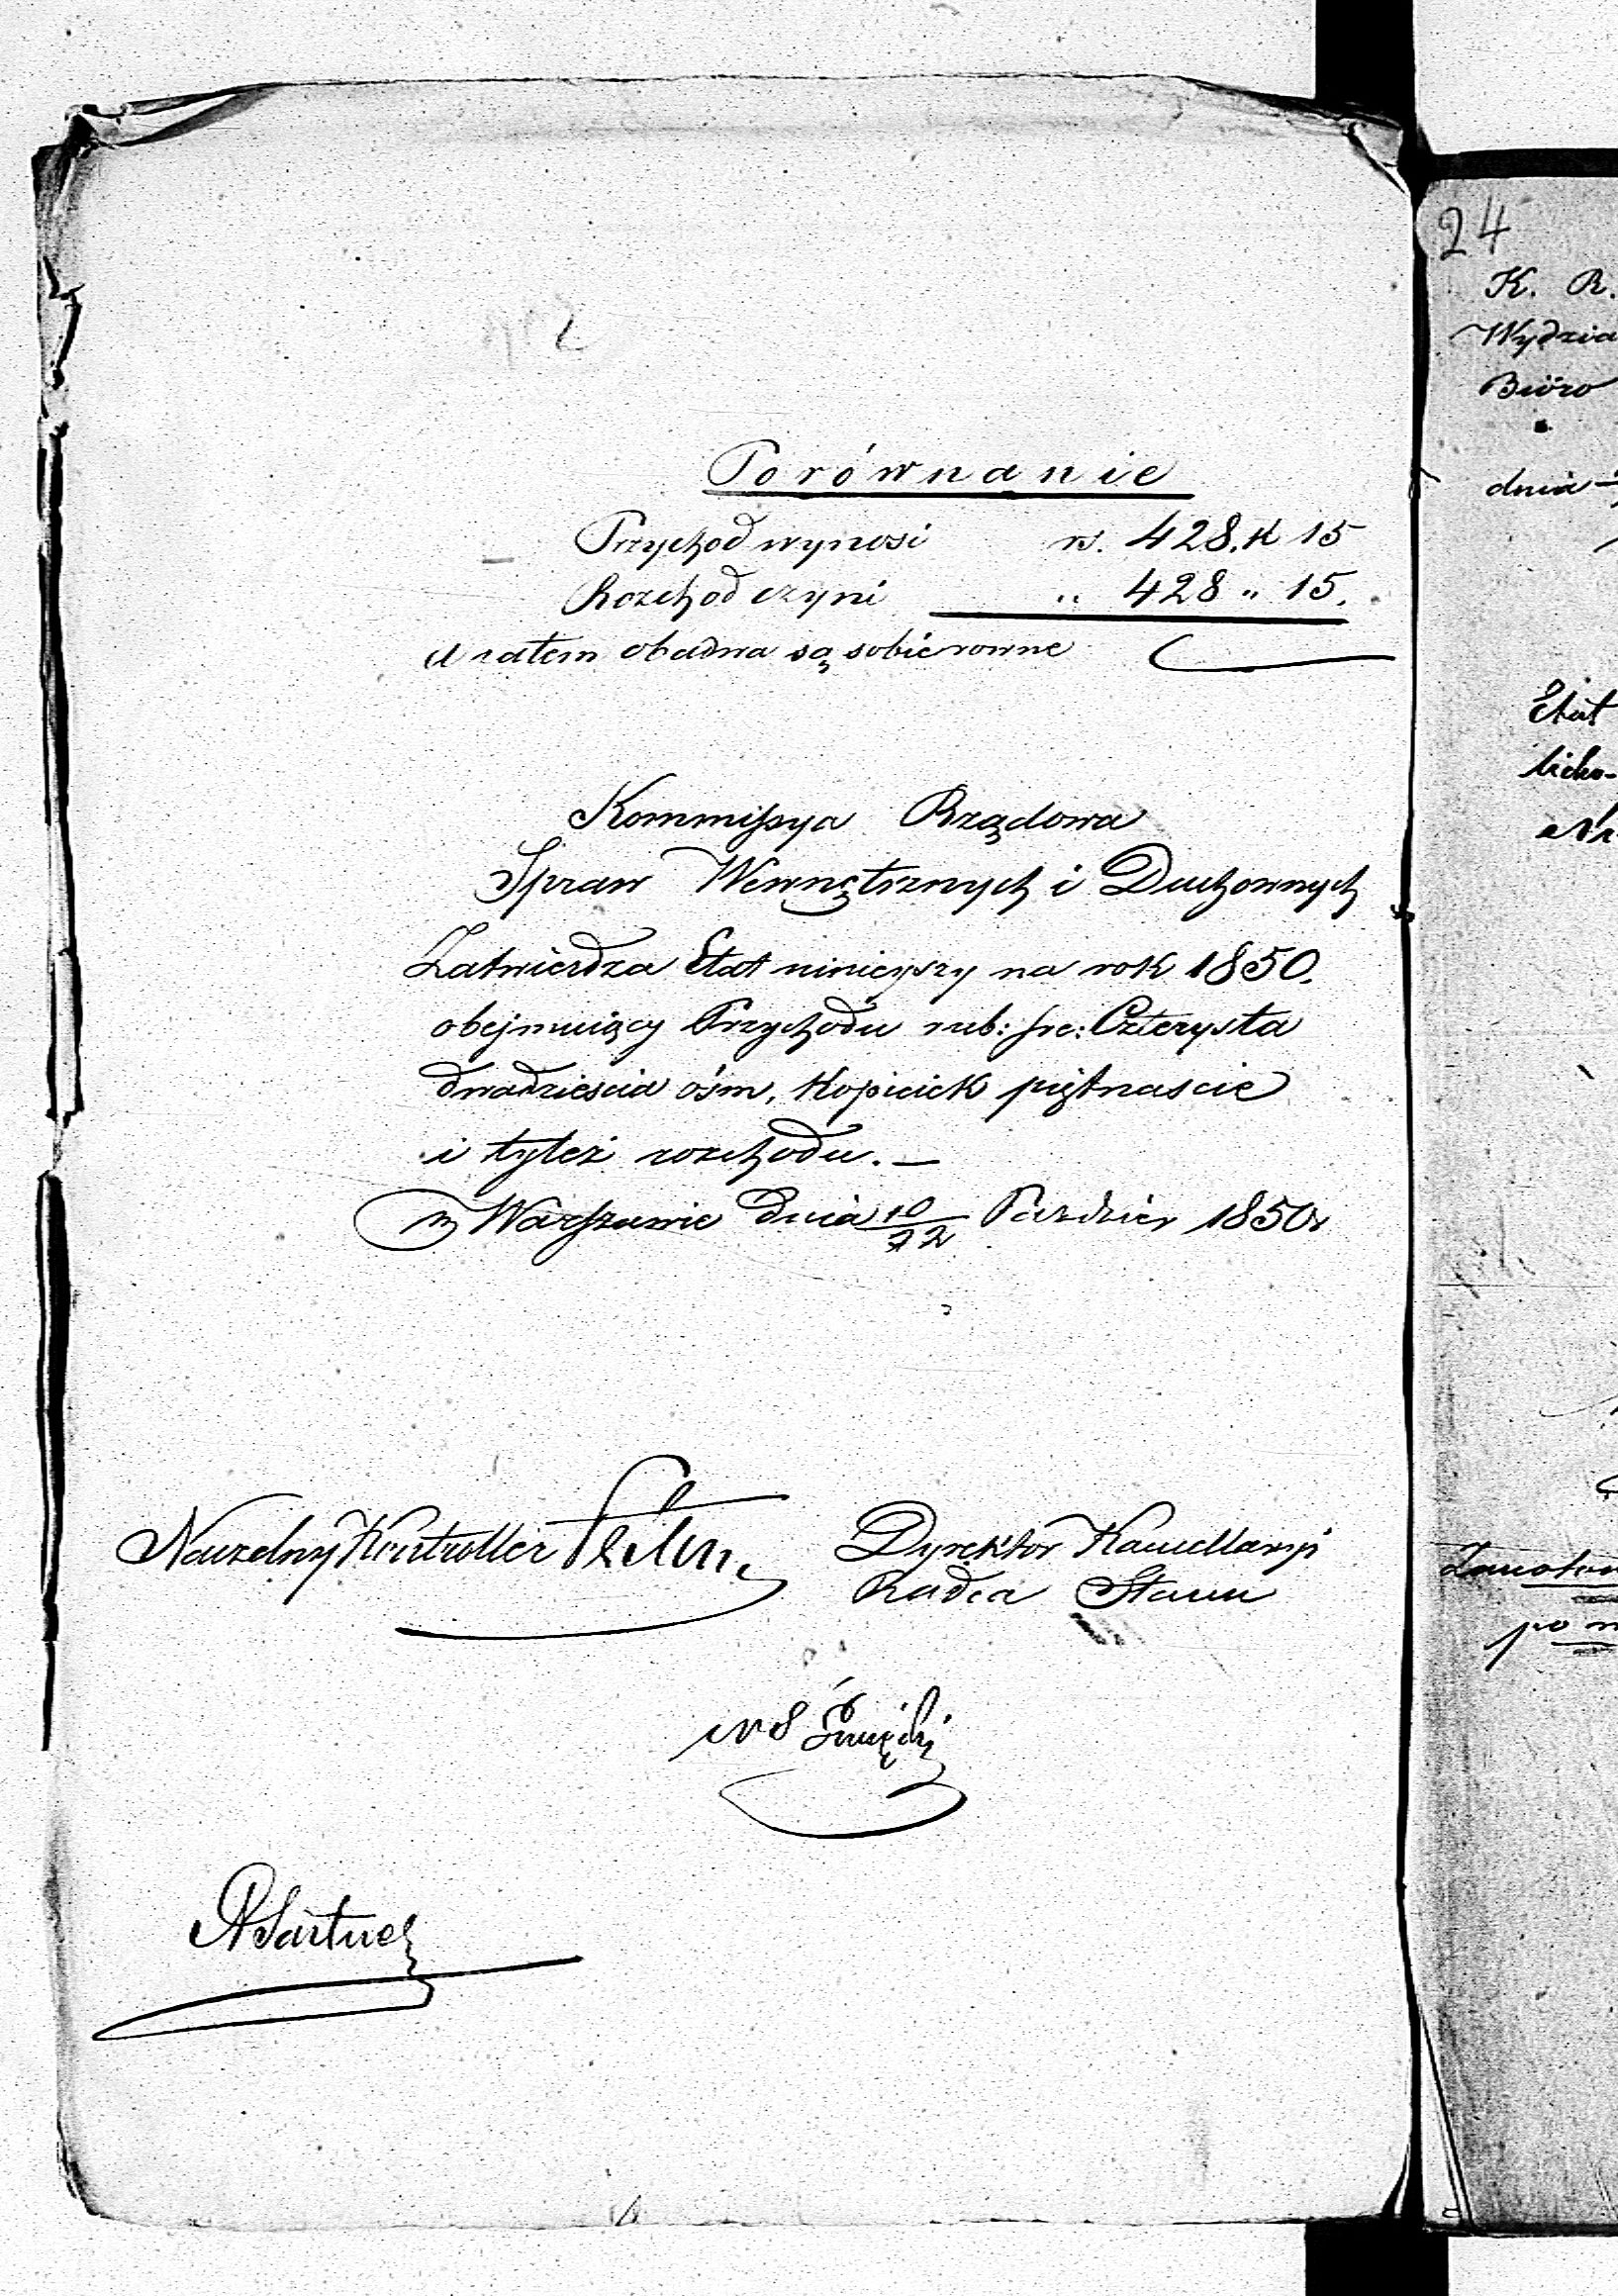 Porównanie
Przychod wynosi rs. 428. k 15
Rozchod czyni „ 428 „ 15.
A zatem obadwa są sobie rowne
Kommissya Rządowa
Spraw Wewnętrznych i Duchownych
Zatwierdza Etat ninieyszy na rok 1850.
obejmuiący Przychodu rub: sre: Czterysta
dwadziescia ośm, kopieiek piętnascie
i tyleż rozchodu. —
w Warszawie dnia 10/22 Paździer 1850 r
Naczelny Kontroller
Dyrektor Kancellaryi
Radca Stanu
24
K. R.
Wydzia
Bióro
dnia
Etat
licko-
po